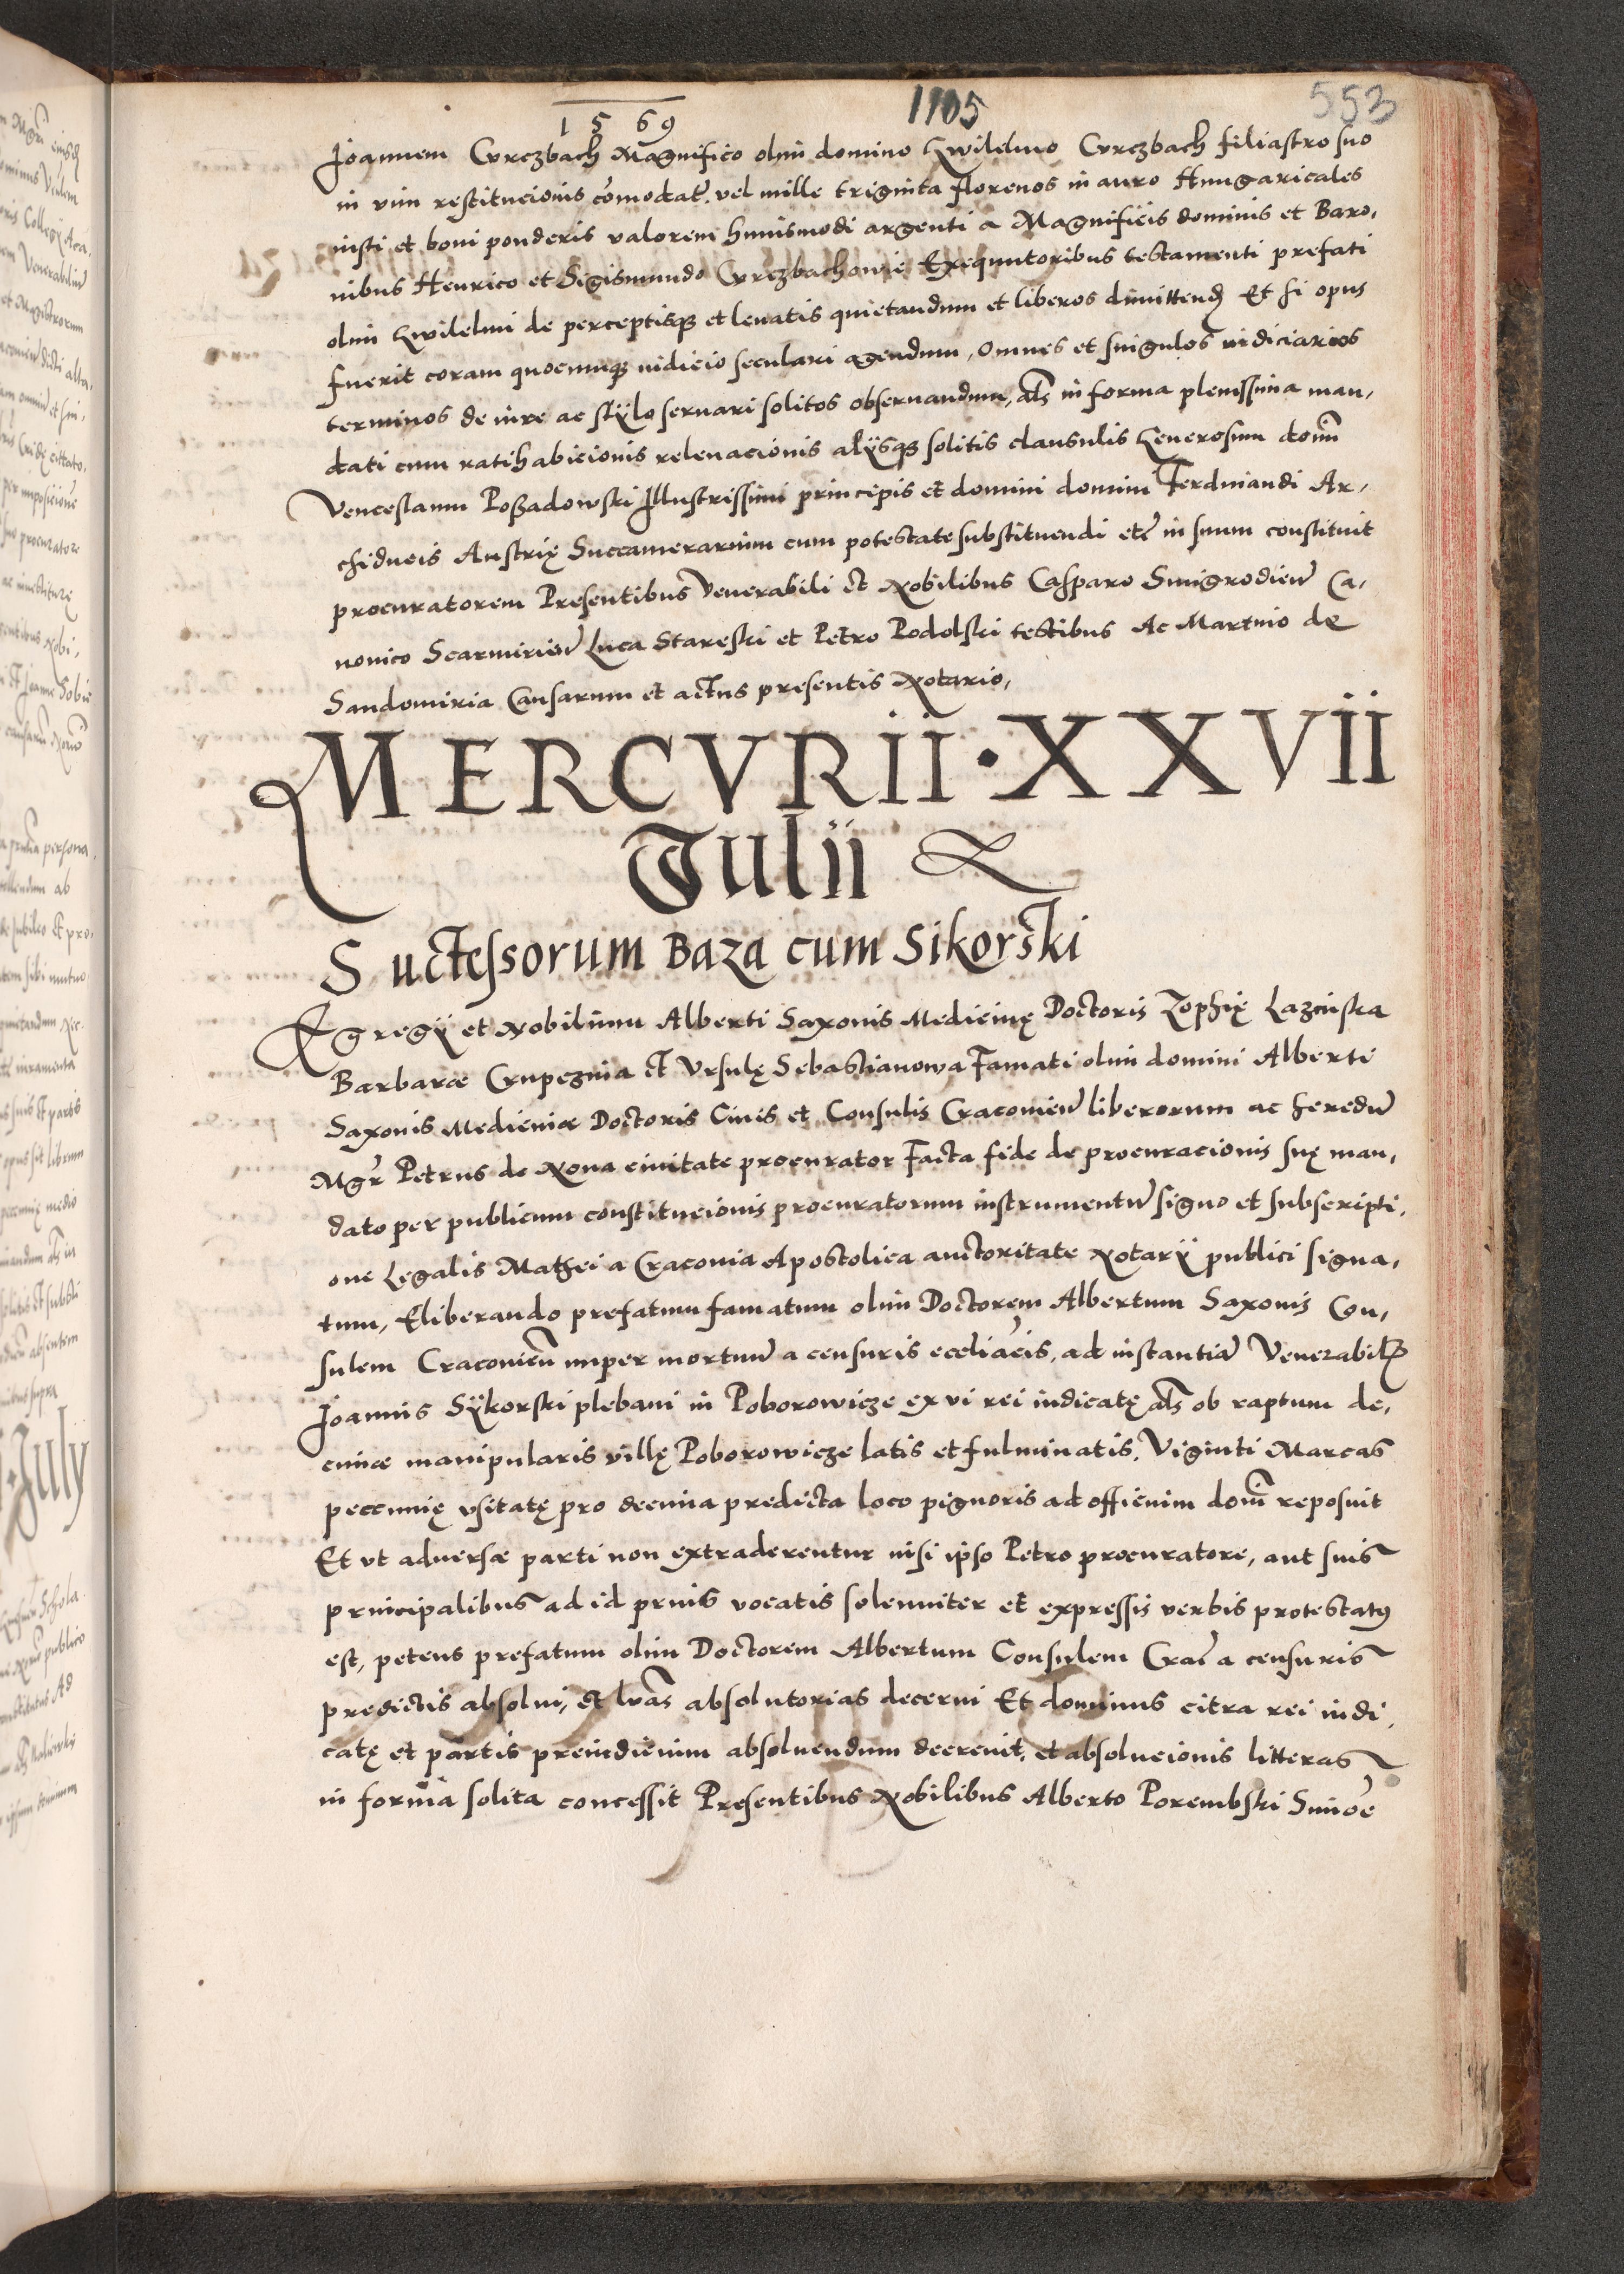 1569
1105
553
Joannem Curczbach Magnifico olim domino Gwilelmo Curczbach filiastro suo
in vim restitucionis comodat. vel mille triginta florenos in auro Hungaricales
iusti et boni ponderis valorem huiusmodi argenti a Magnificis dominis et Baro,
nibus Henrico et Sigismundo Curczbachowie Exequutoribus testamenti prefati
olim Gwilelmi de perceptisque et leuatis quietandum et liberos dimittend Et si opus
fuerit coram quocunque iudicio seculari agendum, omnes et singulos iudiciarios
terminos de iure ac stÿlo seruari solitos obseruandum, als in forma plenissima man,
dati cum ratihabicionis releuacionis alÿsque solitis clausulis Generosum dom
Venceslaum Poßadowski Illustrissimi principis et domini domini Ferdinandi Ar,
chiducis Austrię Succamerarium cum potestate substituendi etc in suum constituit
procuratorem Presentibus Venerabili et Nobilibus Casparo Smigrodien Ca,
nonico Scarmirien Luca Stareski et Petro Podolski testibus Ac Martino de
Sandomiria Causarum et actus presentis Notario,
MERCVRII·XXVII
Iulii
Suctessorum Baza cum Sikorski
Egregÿ et Nobilium Alberti Saxonis Medicinę Doctoris Zophię Lazciuska
Barbaræ Crupeznia et Vrsulę Sebastianowa Famati olim domini Alberti
Saxonis Medicinæ Doctoris Ciuis et Consulis Cracouien liberorum ac heredu
Mgr Petrus de Noua ciuitate procurator Facta fide de procuracionis suę man,
dato per publicum constitucionis procuratorum instrumentu signo et subscripti,
one Legalis Mathei a Cracouia Apostolica auctoritate Notarÿ publici signa,
tum, Eliberando prefatum famatum olim Doctorem Albertum Saxonis Con,
sulem Cracouien nuper mortuu a censuris eccliacis, ad instantia Venerabil
Joannis Sÿkorski plebani in Poborowicze ex vi rei iudicatę als ob raptum de,
cimæ manipularis villę Poborowicze latis et fulminatis, Viginti Marcas
peccunię vsitatę pro decima predicta loco pignoris ad officium dom reposuit
Et vt aduersæ parti non extraderentur nisi ipso Petro procuratore, aut suis
principalibus ad id prius vocatis solenniter et expressis verbis protestatus
est, petens prefatum olim Doctorem Albertum Consulem Crac a censuris
predictis absolui, et lras absolutorias decerni Et dominus citra rei iudi,
catę et partis preiudicium absoluendum decreuit, et absolucionis litteras
in forma solita concessit Presentibus Nobilibus Alberto Porembski Simoe